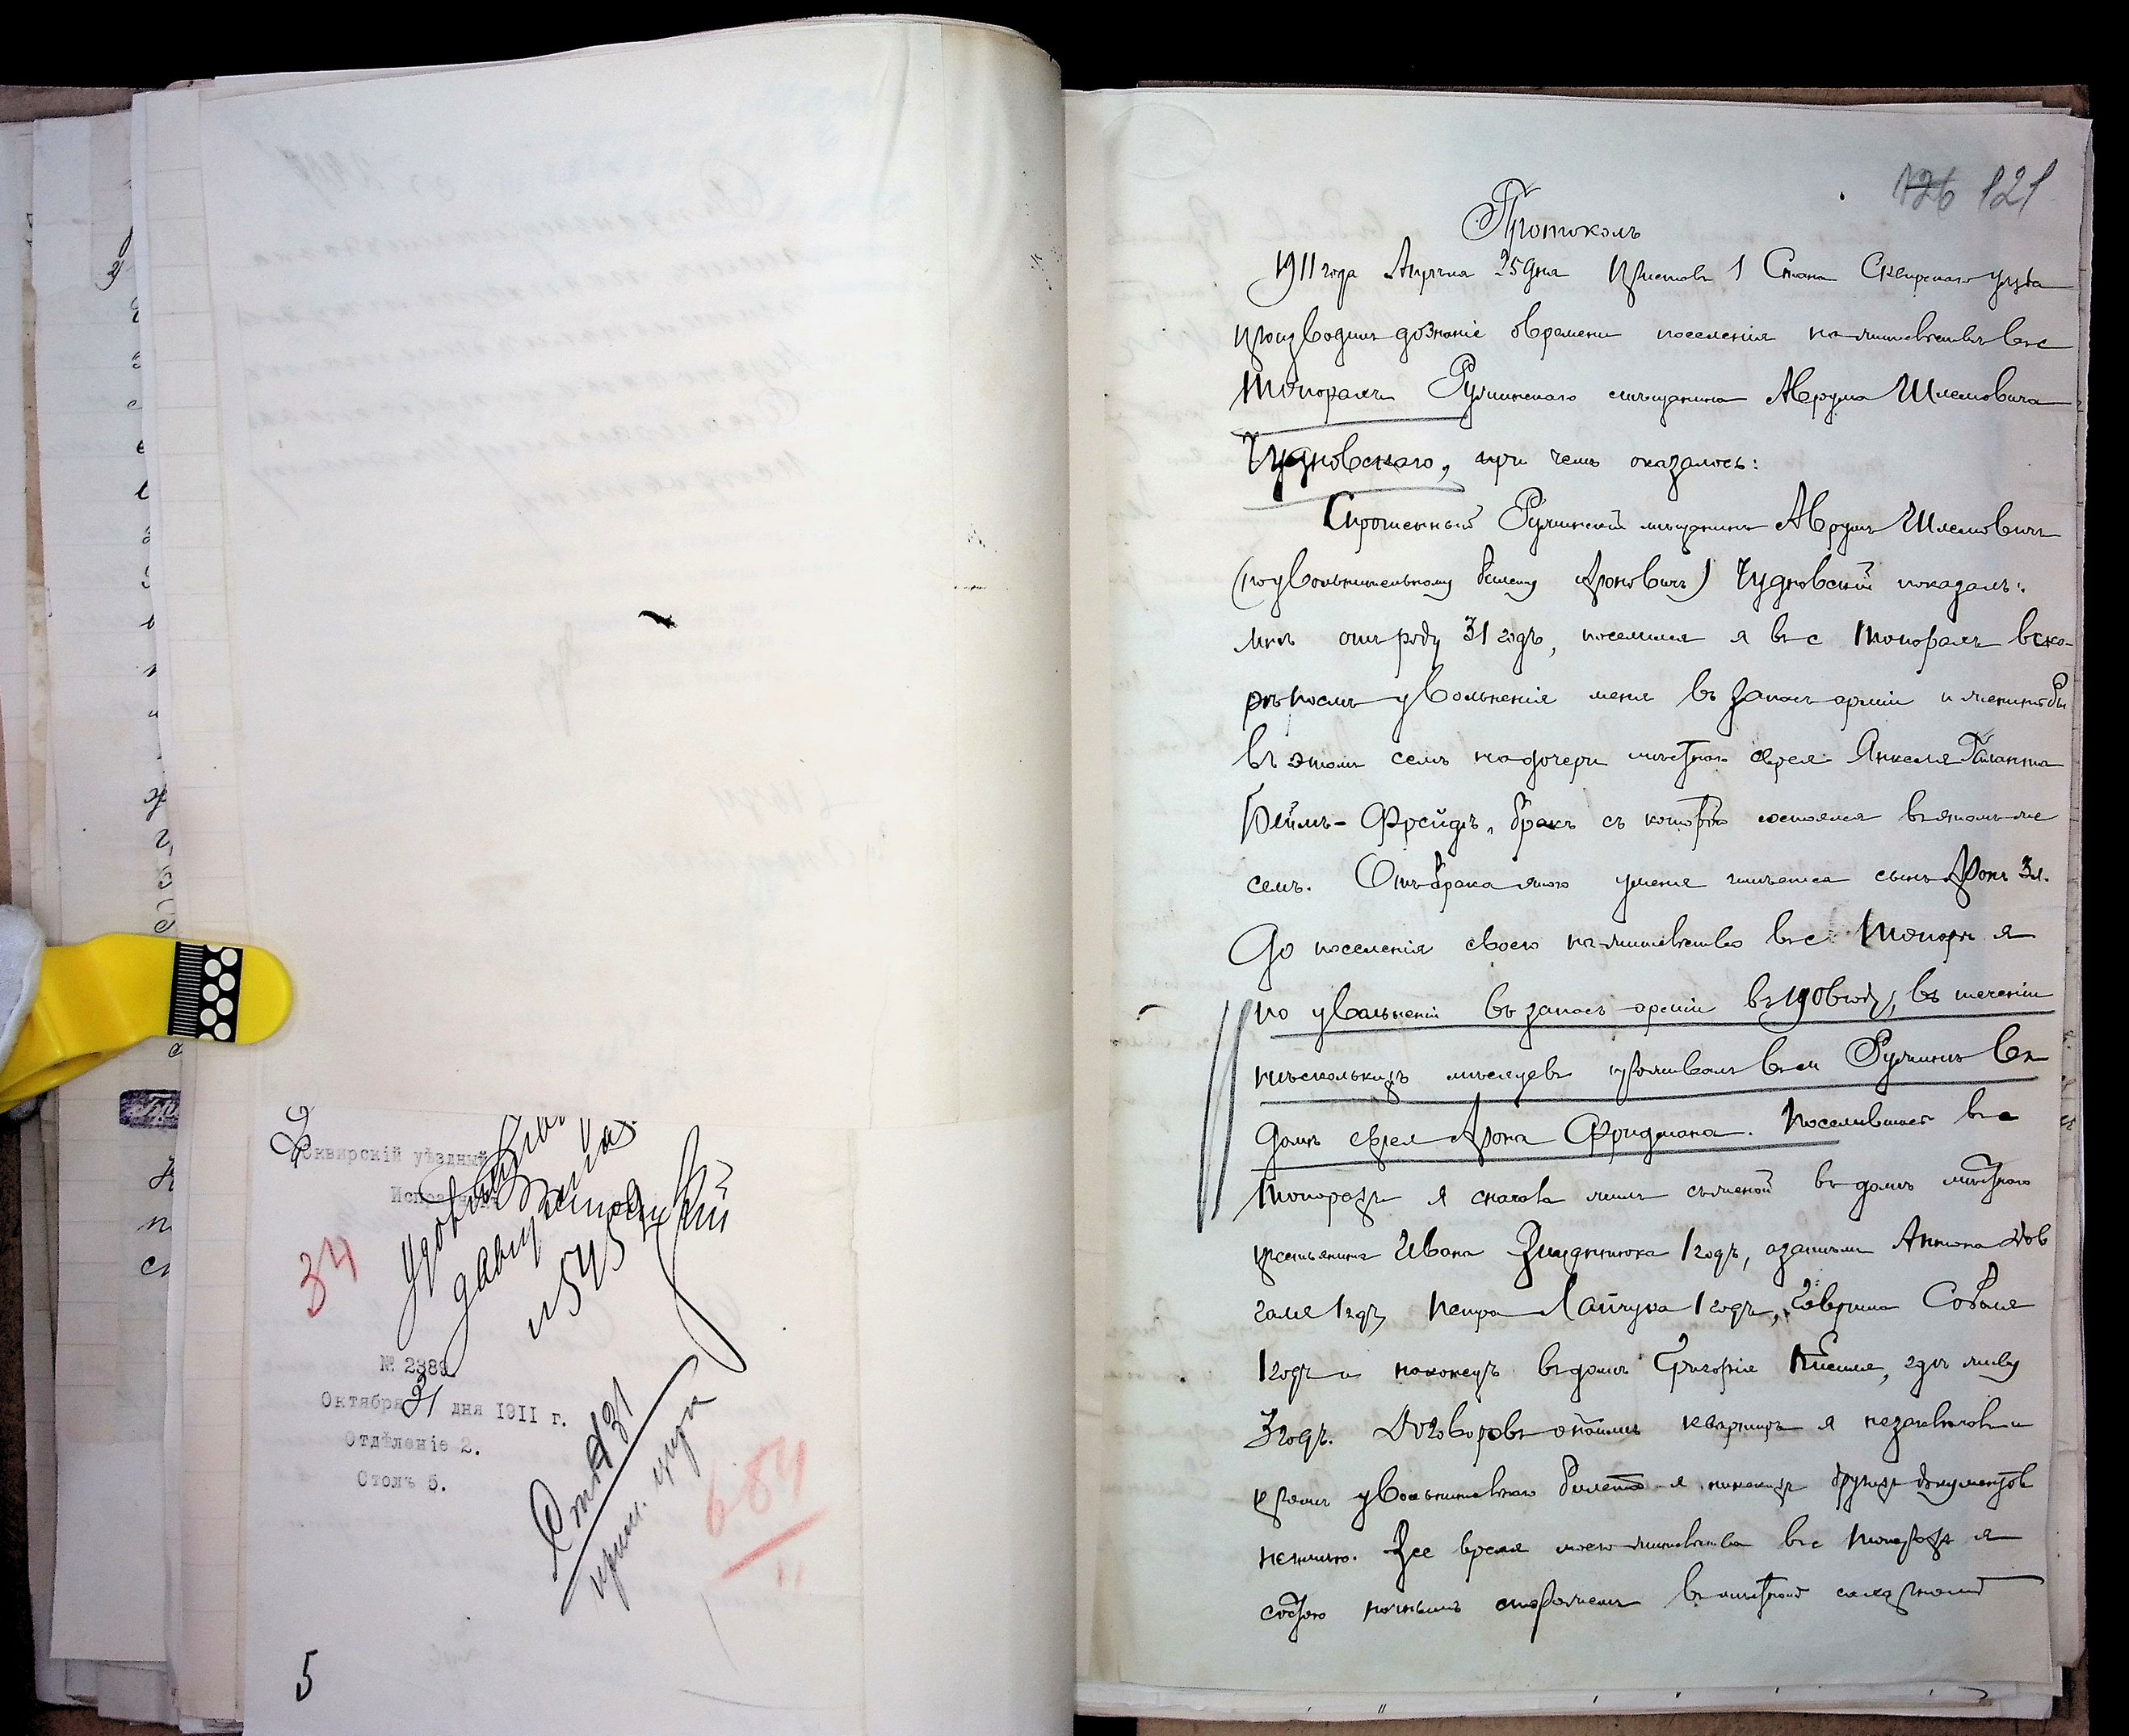 Сквирскій уѣздный
Исправникъ
34
№ 2389
Октября 31 дня 1911 г.
Отдѣленіе 2.
Столъ 5.
684
11
5
126 121
Протоколъ
1911 года Апрѣля 25 дня Приставъ 1 Стана Сквирскаго уѣзда
производилъ дознаніе о времени поселенія на жительство въ с
Топорахъ Ружинскаго мѣщанина Аврума Шлемовича
Чудновскаго, при чемъ оказалось:
Спрошенный Ружинскій мѣщанинъ Аврумъ Шлемовичъ
(по увольнительному билету Ароновичъ) Чудновскій показалъ:
мнѣ отъ роду 31 годъ, поселился я въ с Топорахъ вско-
рѣ послѣ увольненія меня въ запасъ арміи и женитьбы
въ этомъ селѣ на дочери мѣстнаго еврея Янкеля
Бейлѣ-Фрейдѣ, бракъ съ которою состоялся въ этомъ же
селѣ. Отъ брака этого у меня имѣется сынъ Аронъ 3 л.
До поселенія своего на жительство въ с Топоры я
по увольненіи въ запасъ арміи въ 1906 году, въ теченіи
нѣсколькихъ мѣсяцевъ проживалъ въ м Ружинѣ въ
домѣ еврея Арона Фридмана. Поселившись въ с
Топорахъ я сначала жилъ съ женой въ домѣ мѣстнаго
крестьянина Ивана 1 годъ, а затѣмъ Антона Дов
галя 1 годъ, Петра Лайчука 1 годъ, Гавріила Соболя
1 годъ и наконецъ въ домѣ Григорія Киселя, гдѣ живу
3 годъ. Договоровъ о наймѣ квартиръ я не заключалъ и
кромѣ увольнительнаго билета я никакихъ другихъ документовъ
не имѣю. Все время моего жительства въ с Топорахъ я
состою ночнымъ сторожемъ въ мѣстной